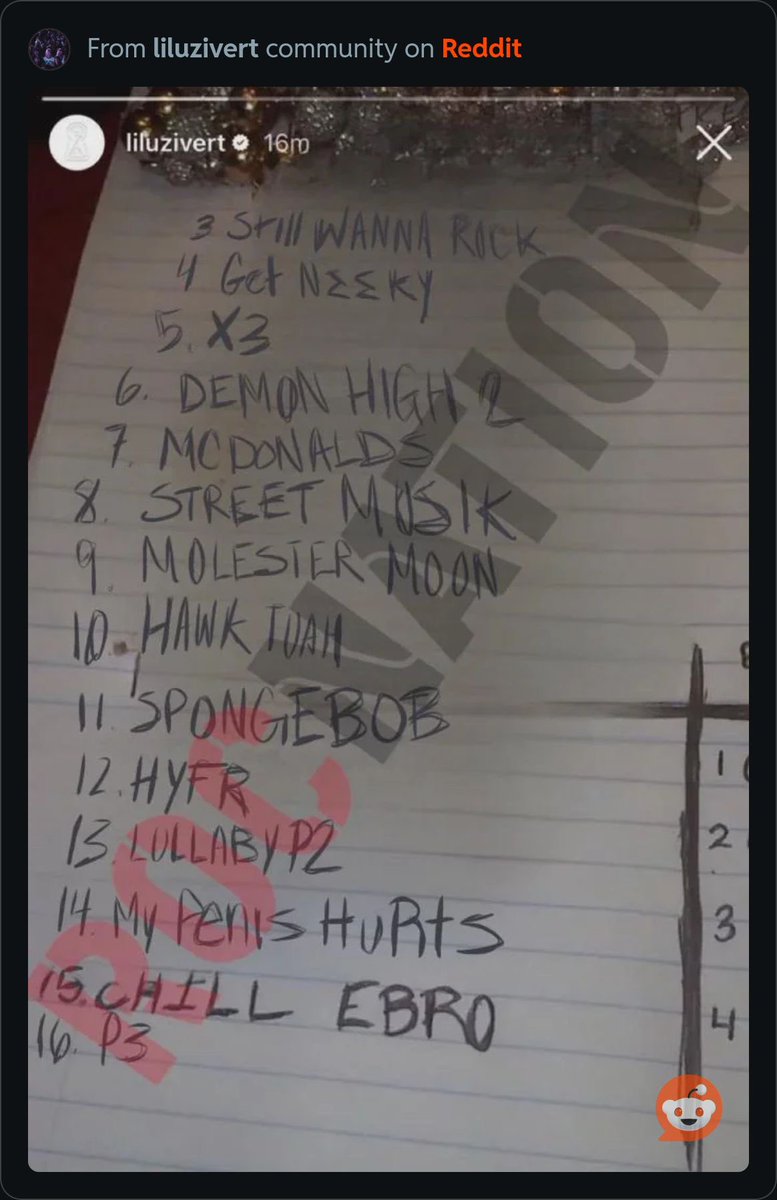 From liluzivert community on Reddit
liluzivert 16m
3 Still WANNA ROCK
4 Get NΣΣKY
5. X3
6. DEMON HIGH 2
7. MCDONALDS
8. STREET MUSIK
9. MOLESTER MOON
10. HAWK TUAH
11. SPONGEBOB
12. HYFR
13. LULLABY P2
14. My Penis HuRts
15. CHILL EBRO
16. P3
1
2
3
4
NATION